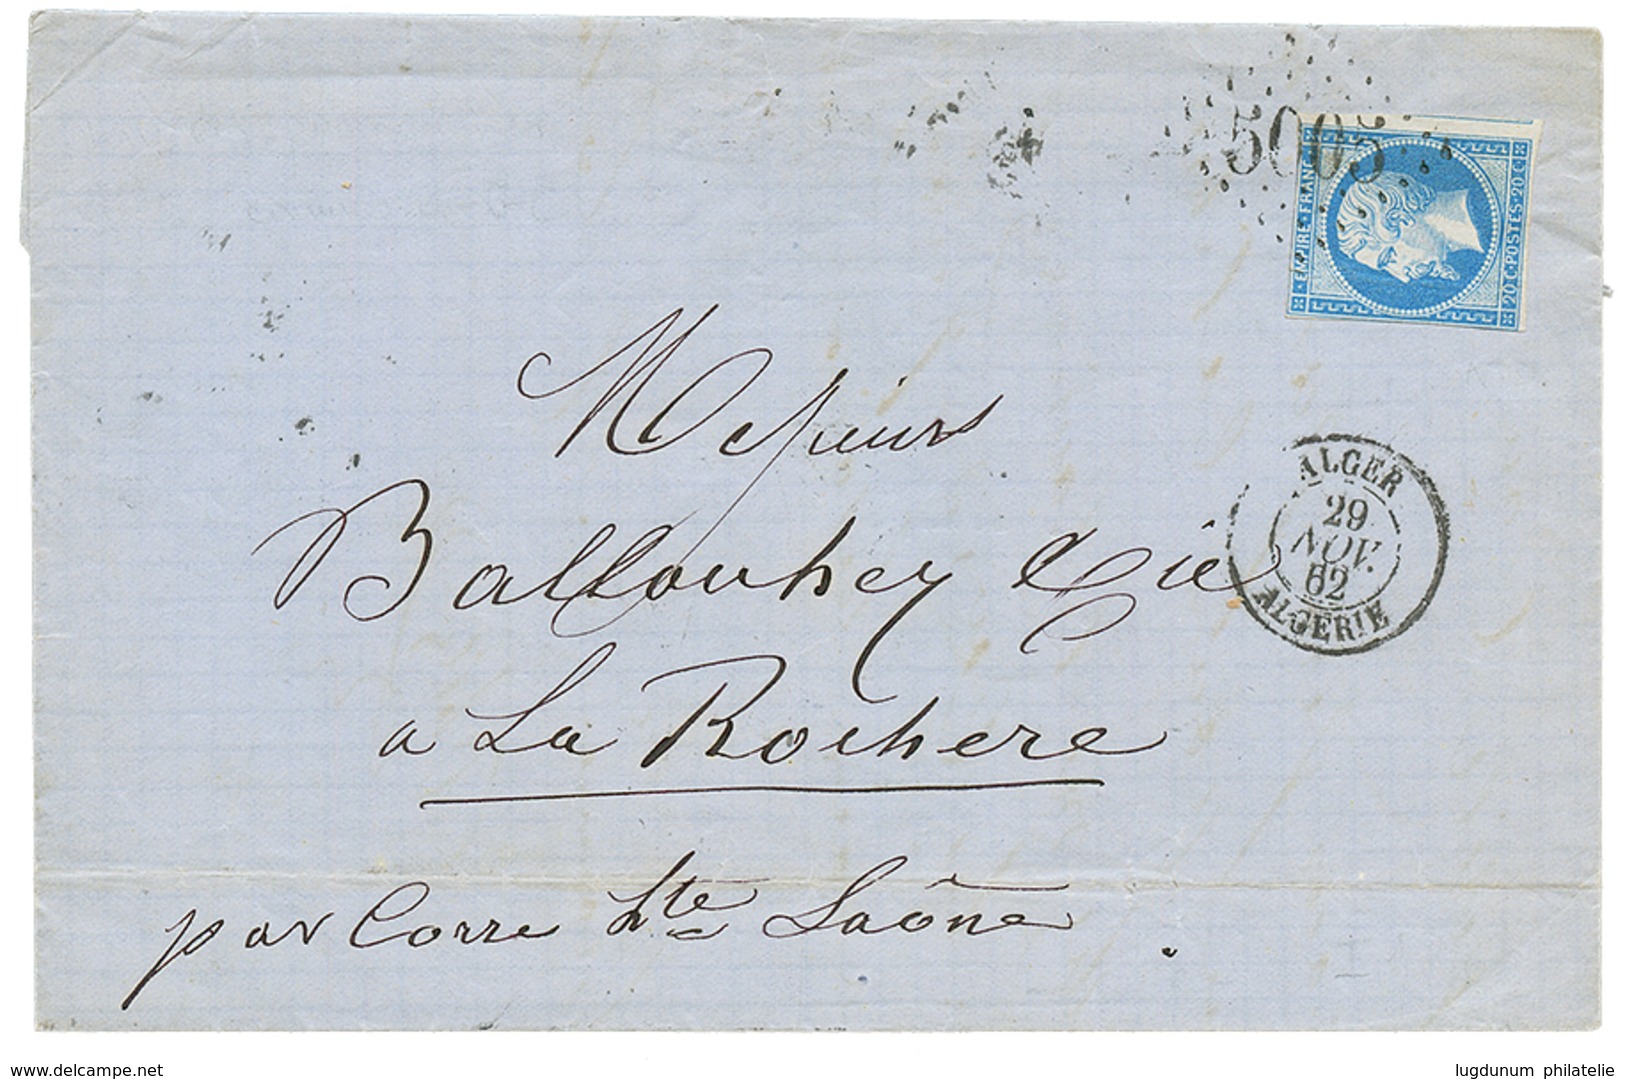 5005
EMPIRE·FRANC
20 C·POSTES·20 C
Messieurs
Ballouhey & Cie
a La Rochere
par Corre Hte Saône.
ALGER
29
NOV.
62
ALGERIE
www.delcampe.net
lugdunum philatelie